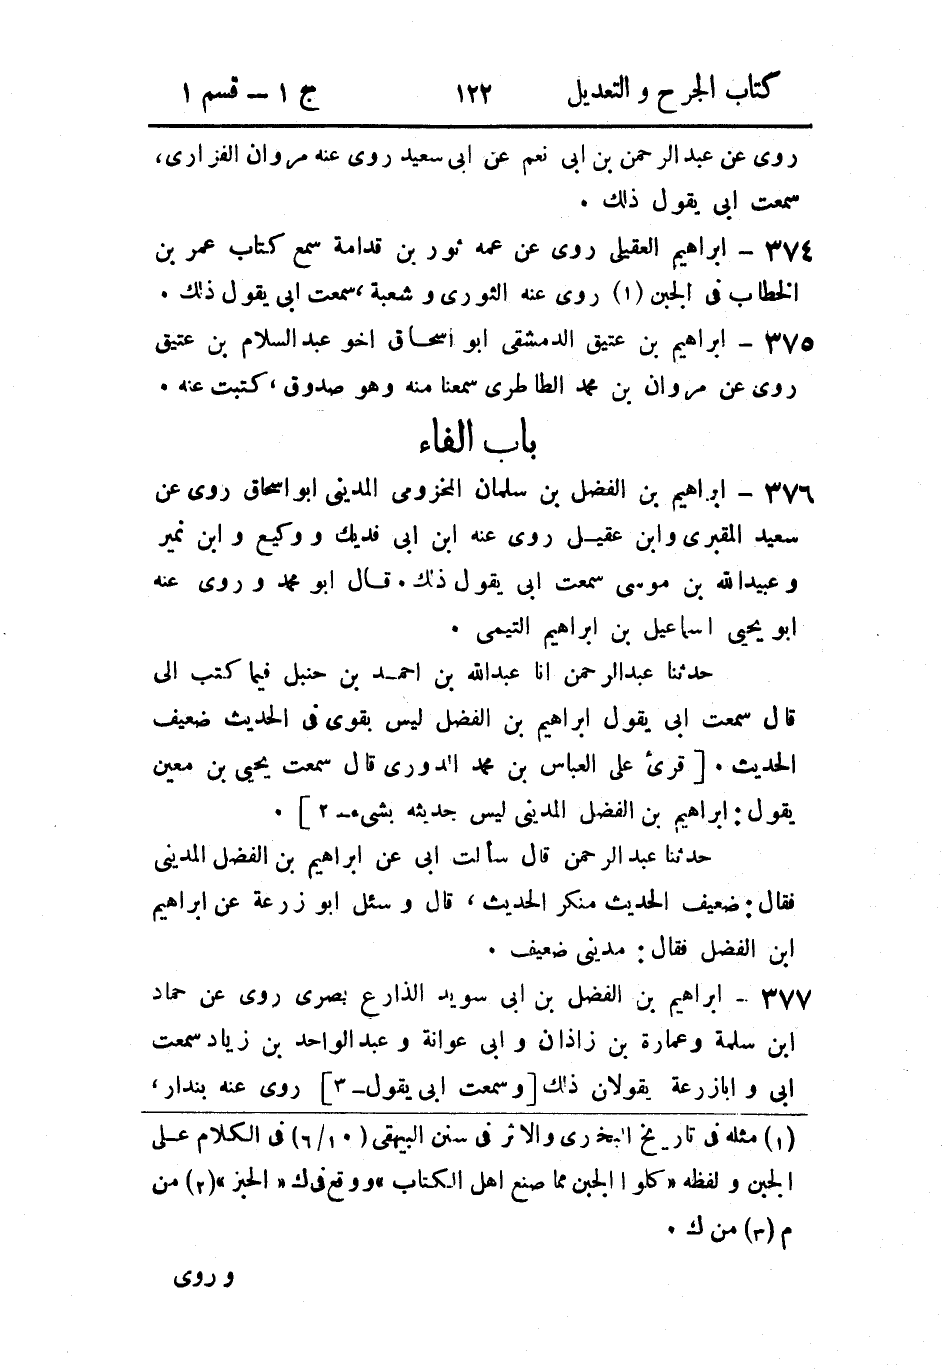 كتاب الجرح و التعديل ١٢٢ ج ١ – قسم ١
روى عن عبد الرحمن بن ابى نعم عن ابى سعيد روى عنه مروان الفزارى،
سمعت ابى يقول ذلك .
٣٧٤ – ابراهيم العقيلى روى عن عمه ثور بن قدامة سمع كتاب عمر بن
الخطاب فى الجبن (١) روى عنه الثورى و شعبة، سمعت ابى يقول ذلك .
٣٧٥ – ابراهيم بن عتيق الدمشقى ابو اسحاق اخو عبد السلام بن عتيق
روى عن مروان بن محمد الطاطرى سمعنا منه وهو صدوق، كتبت عنه .
باب الفاء
٣٧٦ – ابراهيم بن الفضل بن سلمان المخزومى المدينى ابو اسحاق روى عن
سعيد المقبرى وابن عقيل روى عنه ابن ابى فديك و وكيع و ابن نمير
و عبيدالله بن موسى سمعت ابى يقول ذلك . قال ابو محمد و روى عنه
ابو يحيى اسماعيل بن ابراهيم التيمى .
حدثنا عبدالرحمن انا عبدالله بن احمد بن حنبل فيما كتب الى
قال سمعت ابى يقول ابراهيم بن الفضل ليس بقوى فى الحديث ضعيف
الحديث . [ قرئ على العباس بن محمد الدورى قال سمعت يحيى بن معين
يقول: ابراهيم بن الفضل المدينى ليس حديثه بشىء – ٢ ] .
حدثنا عبد الرحمن قال سألت ابى عن ابراهيم بن الفضل المدينى
فقال: ضعيف الحديث منكر الحديث، قال و سئل ابو زرعة عن ابراهيم
ابن الفضل فقال: مدينى ضعيف .
٣٧٧ – ابراهيم بن الفضل بن ابى سويد الذارع بصرى روى عن حماد
ابن سلمة وعمارة بن زاذان و ابى عوانة و عبد الواحد بن زياد سمعت
ابى و ابازرعة يقولان ذلك [ و سمعت ابى يقول – ٣ ] روى عنه بندار،
(١) مثله فى تاريخ البخارى والاثر فى سنن البيهقى (٦/١٠) فى الكلام على
الجبن و لفظه «كلوا الجبن مما صنع اهل الكتاب» ووقع فى ك «الخبز» (٢) من
م (٣) من ك .
و روى